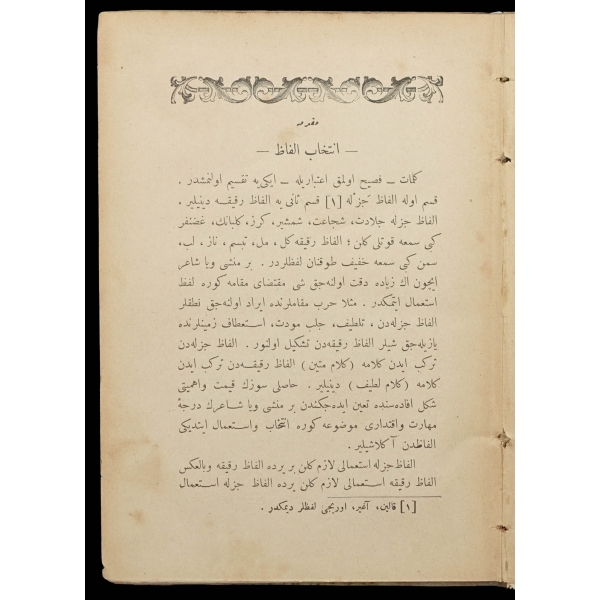 مقدمه
— انتخاب الفاظ —
كلمات — فصيح اولمق اعتباريله — ايكى‌يه تقسيم اولنمشدر .
قسم اوله الفاظ جَزْله [١] قسم ثانى يه الفاظ رقيقــه دينيلير .
الفاظ جزله جلادت، شجاعت، شمشير، كرز، كلبانك، غضنفر
كبى سمعه قوتلى كلن ؛ الفاظ رقيقه كل ، مل ، تبسم ، ناز ، لب،
سمن كبى سمعه خفيف طوقنان لفظلردر . بر منشى ويا شاعر
ايچون اك زياده دقت اولنه‌جق شى مقتضاى مقامه كوره لفظ
استعمال ايتمكدر . مثلا حرب مقاملرنده ايراد اولنه‌جق نطقلر
الفاظ جزله‌دن ، تلطيف، جلب مودت، استعطاف زمينلرنده
يازيله‌جق شيلر الفاظ رقيقه‌دن تشكيل اولنور . الفاظ جزله‌دن
تركب ايدن كلامه (كلام متين) الفاظ رقيقه‌دن تركب ايدن
كلامه (كلام لطيف) دينيلير . حاصلى سوزك قيمت واهميتى
شكل افاده‌سنده تعين ايده‌جكندن بر منشى ويا شــاعرك درجۀ
مهارت واقتدارى موضوعه كوره انتخاب واستعمال ايتديكى
الفاظدن آكلاشيلير .
الفاظ جزله استعمالى لازم كلن بر يرده الفاظ رقيقه وبالعكس
الفاظ رقيقه استعمالى لازم كلن يرده الفاظ جزله استعمال
[١] قالين، آغير، اوريجى لفظلر ديمكدر .